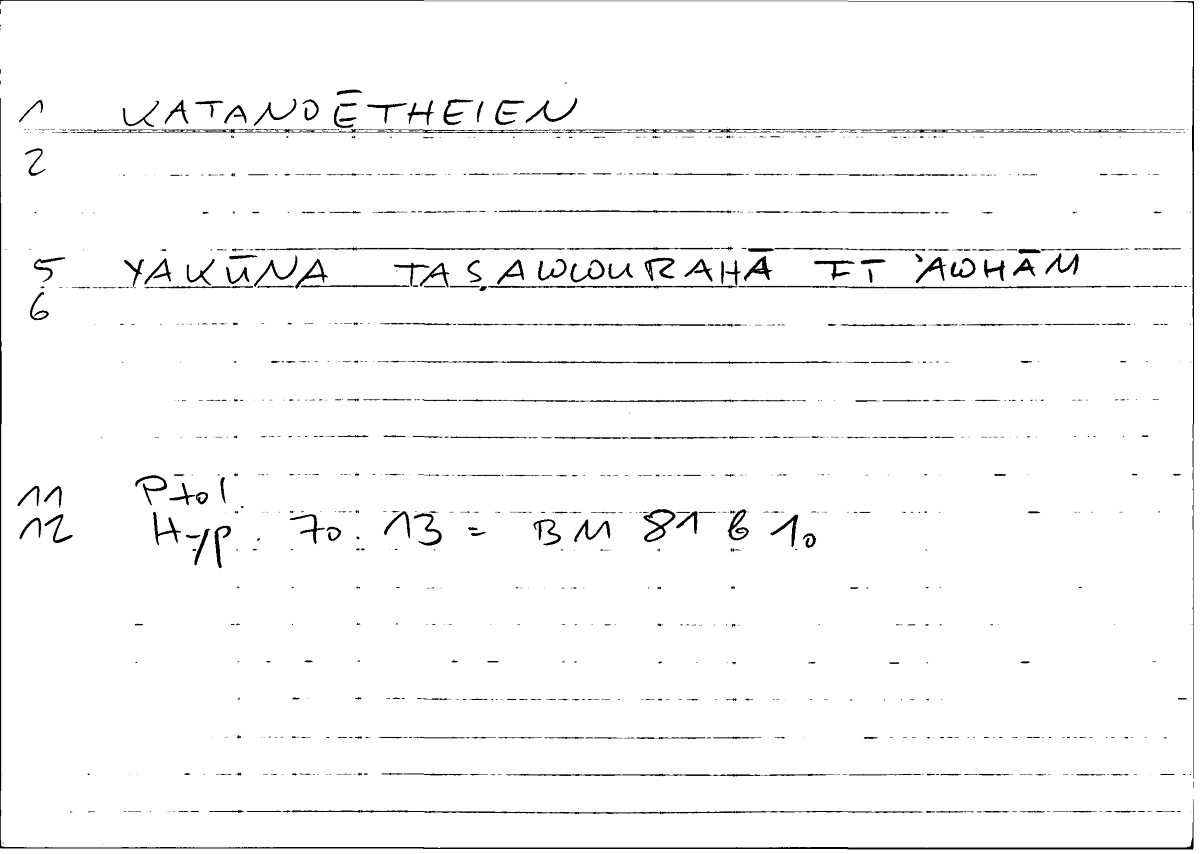 1 KATANOĒTHEIEN
2
5 YAKŪNA TAṢAWWURAHĀ FĪ 'AWHĀM
6
11 Ptol.
12 Hyp. 70.13 = BM 81 b 10